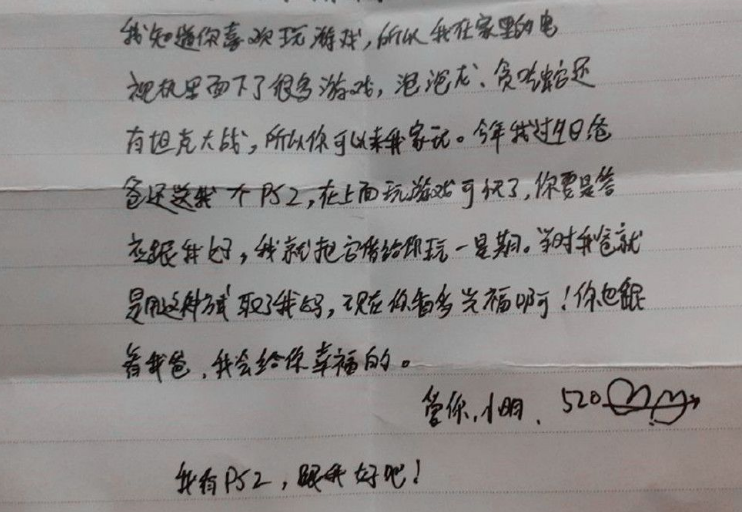 我知道你喜欢玩游戏，所以我在家里的电
视机里面下了很多游戏，泡泡龙、贪吃蛇还
有坦克大战，所以你可以来我家玩。今年我过生日爸
爸还送我个PS2，在上面玩游戏可快了，你要是答
应跟我好，我就把它借给你玩一星期。当时我爸就
是用这种方式取了我妈，现在你看多幸福啊！你也跟
着我爸，我会给你幸福的。
爱你，小明、520
我有PS2，跟我好吧！